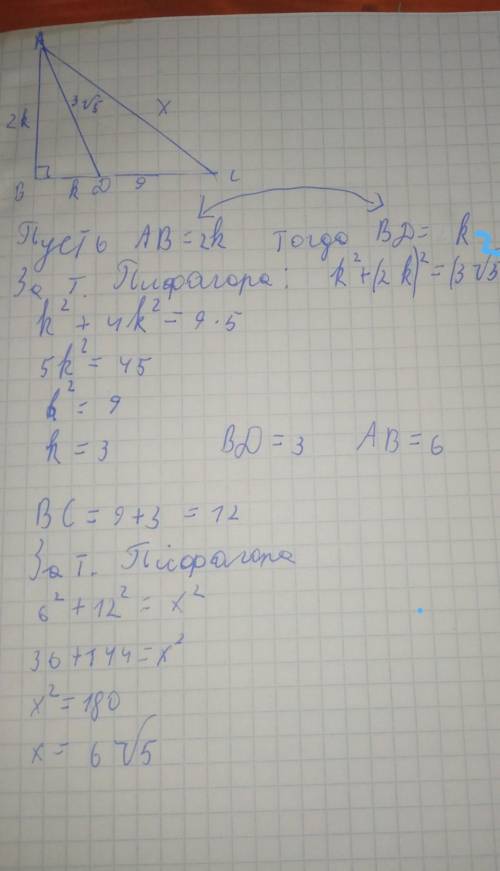 A
2k 3√5 x
B k D 9 C
Пусть AB=2k тогда BD= k
За т. Піфагора: k²+(2k)²=(3√5
k²+4k²=9·5
5k²=45
k²=9
k=3 BD=3 AB=6
BC=9+3=12
За т. Піфагора
6²+12²=x²
36+144=x²
x²=180
x= 6√5